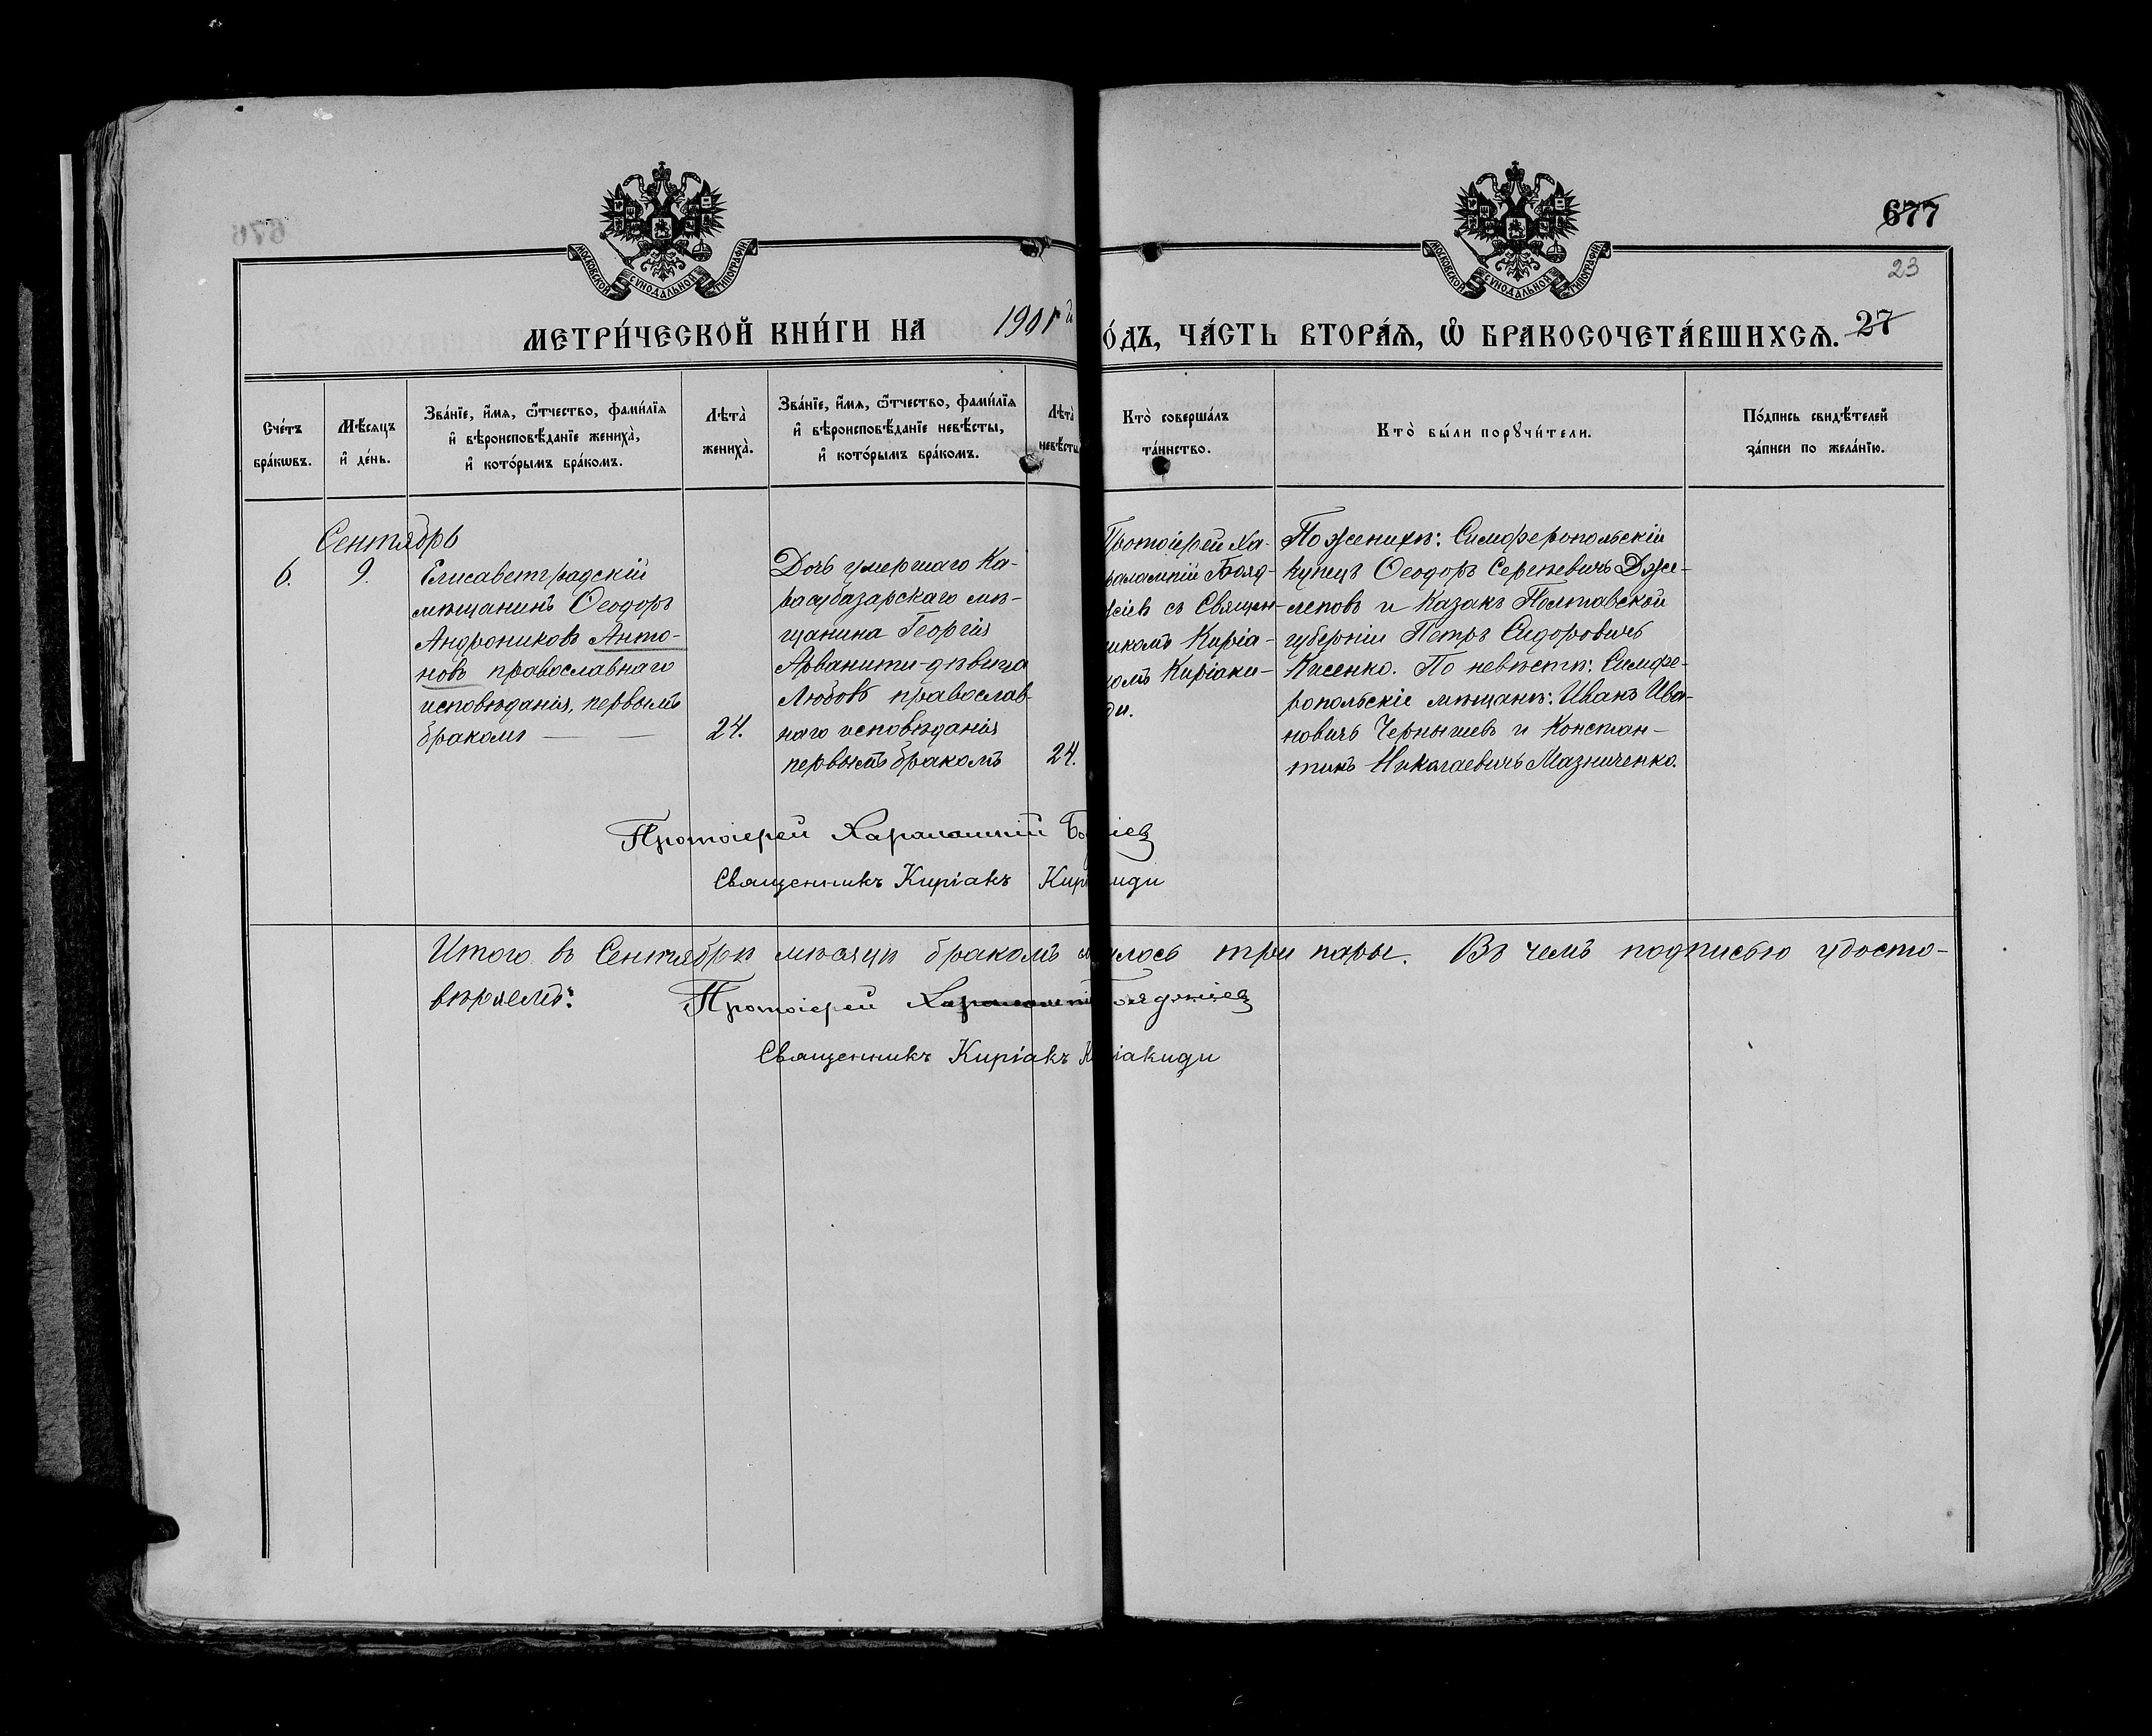 677
23
МОСКОВСКОЙ СѴНОДАЛЬНОЙ ТИПОГРАФІИ
МОСКОВСКОЙ СѴНОДАЛЬНОЙ ТИПОГРАФІИ
МЕТРИ́ЧЕСКОЙ КНИ́ГИ НА 1901 г
О́ДЪ, ЧА́СТЬ ВТОРА́Ѧ, Ѡ БРАКОСОЧЕТА́ВШИХСѦ. 27
Сче́тъ бра́кѡвъ.
Мѣ́сяцъ и҆ де́нь.
Зва́нїе, и҆́мѧ, ѻ҆́тчество, фами́лїѧ
и҆ вѣроисповѣ́данїе жениха̀,
и҆ кото́рымъ бра́комъ.
Лѣта̀ жениха̀.
Зва́нїе, и҆́мѧ, ѻ҆́тчество, фами́лїѧ
и҆ вѣроисповѣ́данїе невѣ́сты,
и҆ кото́рымъ бра́комъ.
Лѣта̀ невѣ́сты
Кто̀ соверша́лъ
та́инство.
Кто̀ бы́ли порꙋчи́тели.
По́дпись свидѣ́телей
за́писи по жела́нїю.
Сентябрь
6.
9.
Елисаветградскій
мѣщанинъ Ѳеодоръ
Андрониковъ Анто-
новъ православнаго
исповѣданія, первымъ
бракомъ
24.
Дочь умершаго Ка-
расубазарскаго мѣ-
щанина Георгія
Арванити-дѣвица
Любовь православ-
наго исповѣданія
первымъ бракомъ
24.
Протоіерей Ха-
ралампій Бояд-
жіевъ съ Священ-
никомъ Киріа-
комъ Киріаки-
ди.
По женихѣ: Симферопольскій
купецъ Ѳеодоръ Сергѣевичъ Дже-
леповъ и Казакъ Полтавской
губерніи Петръ Сидоровичъ
Кисенко. По невѣстѣ: Симфе-
ропольскіе мѣщане: Иванъ Ива-
новичъ Чернышевъ и Констан-
тинъ Николаевичъ Мазниченко.
Протоіерей Харалампій
Священникъ Киріакъ
Итого въ Сентябрѣ мѣсяцѣ бракомъ три пары. Въ чемъ подписью удосто-
вѣряемъ:
Протоіерей Харалампій Бояджіевъ
Священникъ Киріакъ Киріакиди